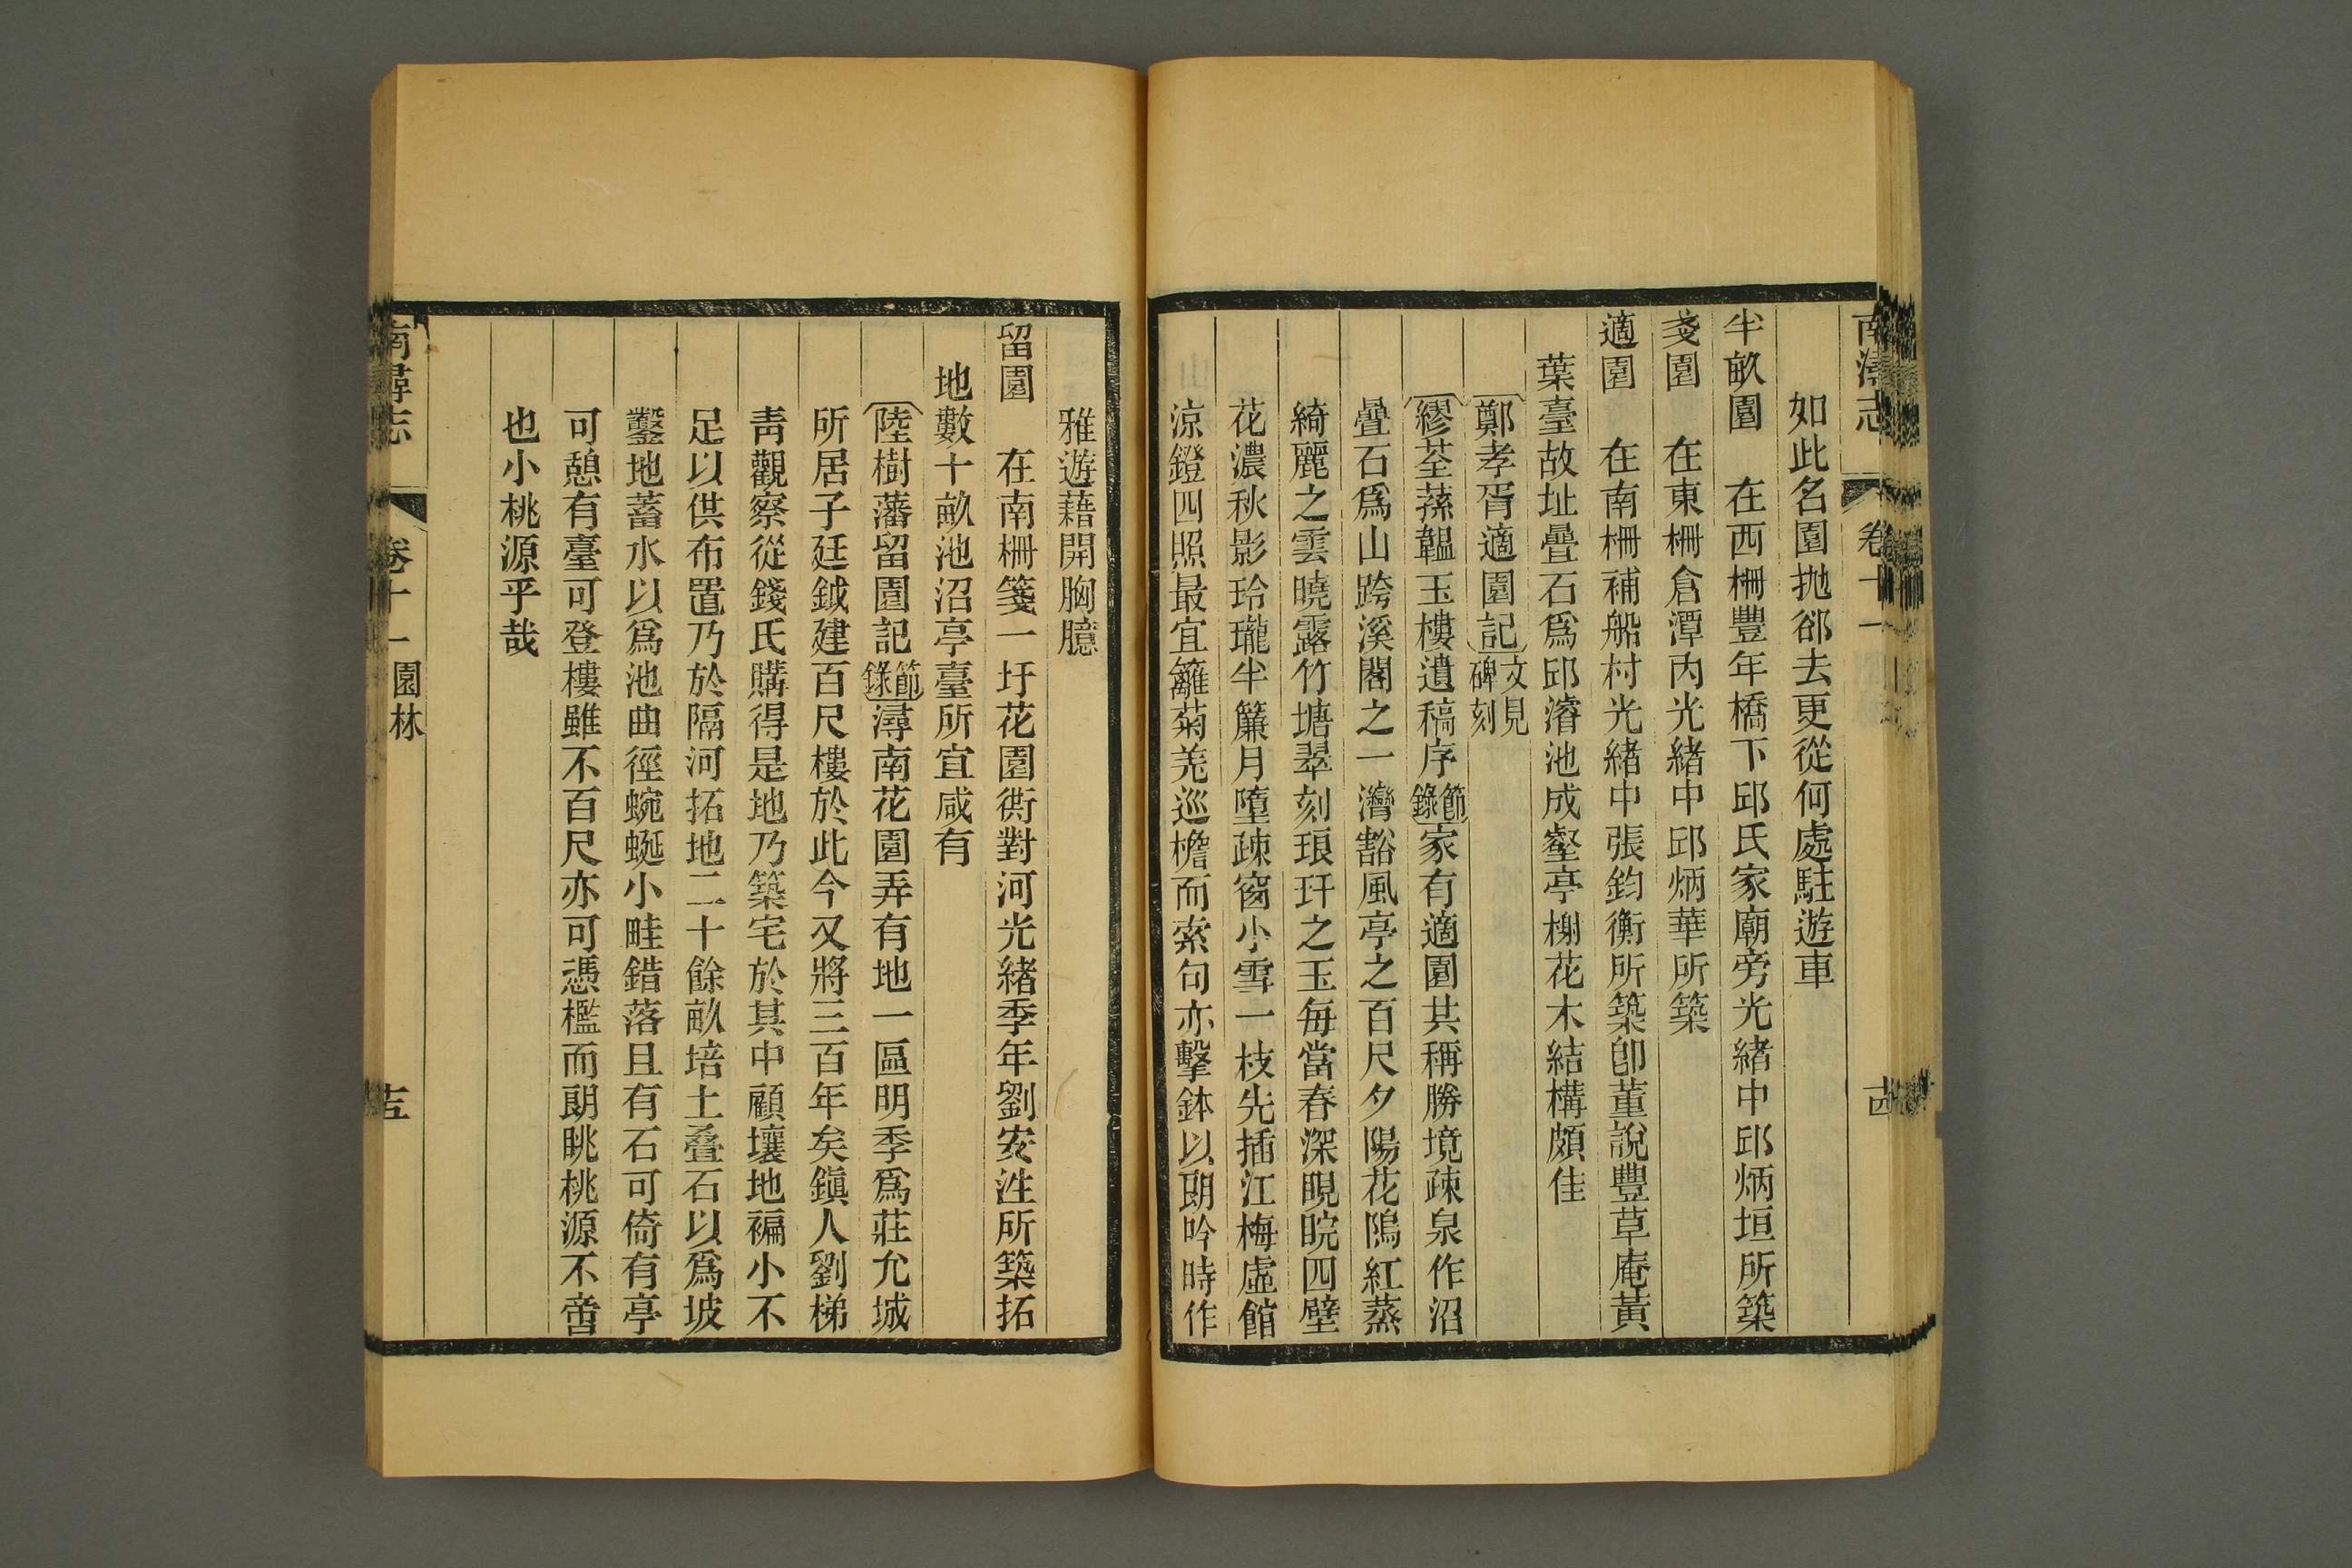 南潯志 卷十一 古
如此名園拋郤去更從何處駐遊車
半畝園 在西柵豐年橋下邱氏家廟旁光緒中邱炳垣所築
戔園 在東柵倉潭內光緒中邱炳華所築
適園 在南柵補船村光緒中張鈞衡所築卽董說豐草庵黃
葉臺故址疊石爲邱濬池成壑亭榭花木結構頗佳
鄭孝胥適園記文見碑刻
繆荃蓀韞玉樓遺稿序節錄家有適園其稱勝境疎泉作沼
疊石爲山跨溪閣之一灣豁風亭之百尺夕陽花隝紅蒸
綺麗之雲曉露竹塘翠刻琅玕之玉每當春深晛睆四壁
花濃秋影玲瓏半簾月墮疎窗小雪一枝先插江梅虛館
涼鐙四照最宜籬菊羌巡檐而索句亦擊鉢以朗吟時作
雅遊藉開胸臆
留園 在南柵箋一圩花園衖對河光緒季年劉安泩所築拓
地數十畝池沼亭臺所宜咸有
陸樹藩留園記節錄潯南花園弄有地一區明季爲莊允城
所居子廷鉞建百尺樓於此今又將三百年矣鎭人劉梯
青觀察從錢氏購得是地乃築宅於其中顧壤地褊小不
足以供布置乃於隔河拓地二十餘畝培土疊石以爲坡
鑿地蓄水以爲池曲徑蜿蜒小畦錯落且有石可倚有亭
可憩有臺可登樓雖不百尺亦可憑檻而朗眺桃源不啻
也小桃源乎哉
南潯志 卷十一 園林 十五